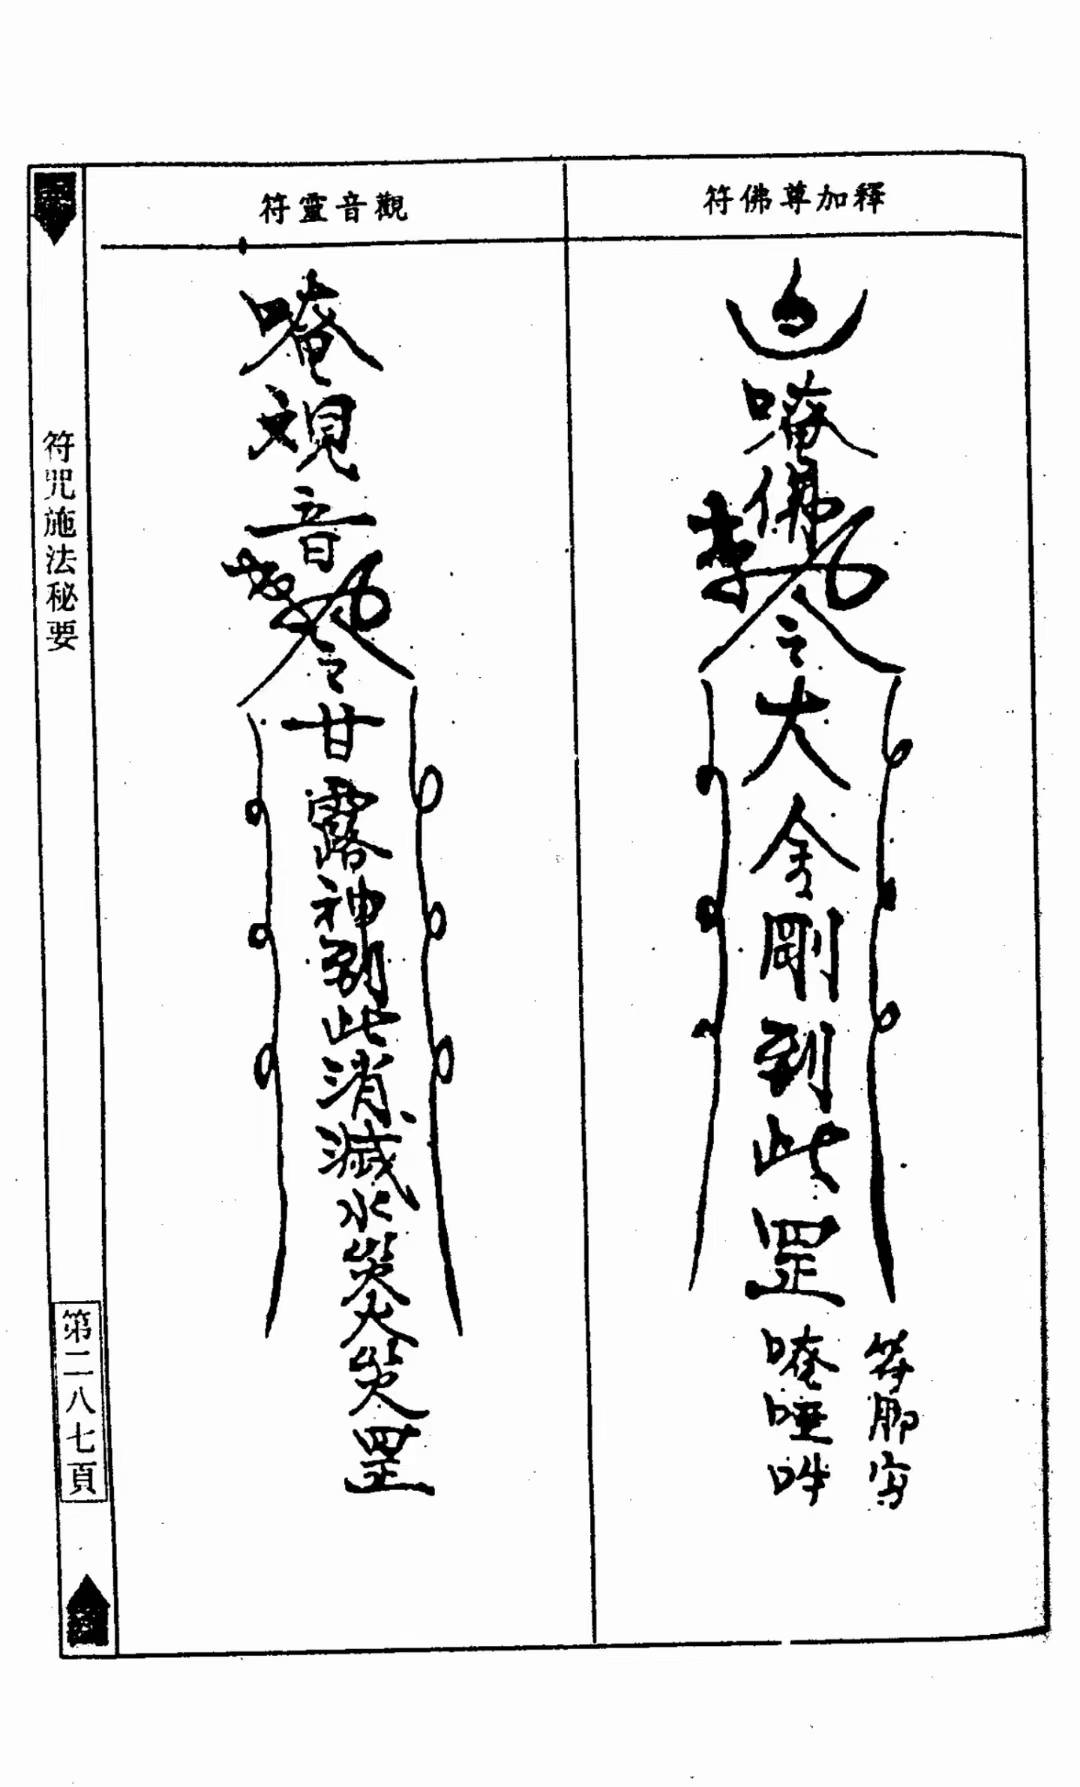 釋加尊佛符
唵佛
奉
令大金剛到此罡
唵啞吽
符腳寫
觀音靈符
唵観音
敕
令甘露神到此消滅水災火災罡
符咒施法秘要
第二八七頁